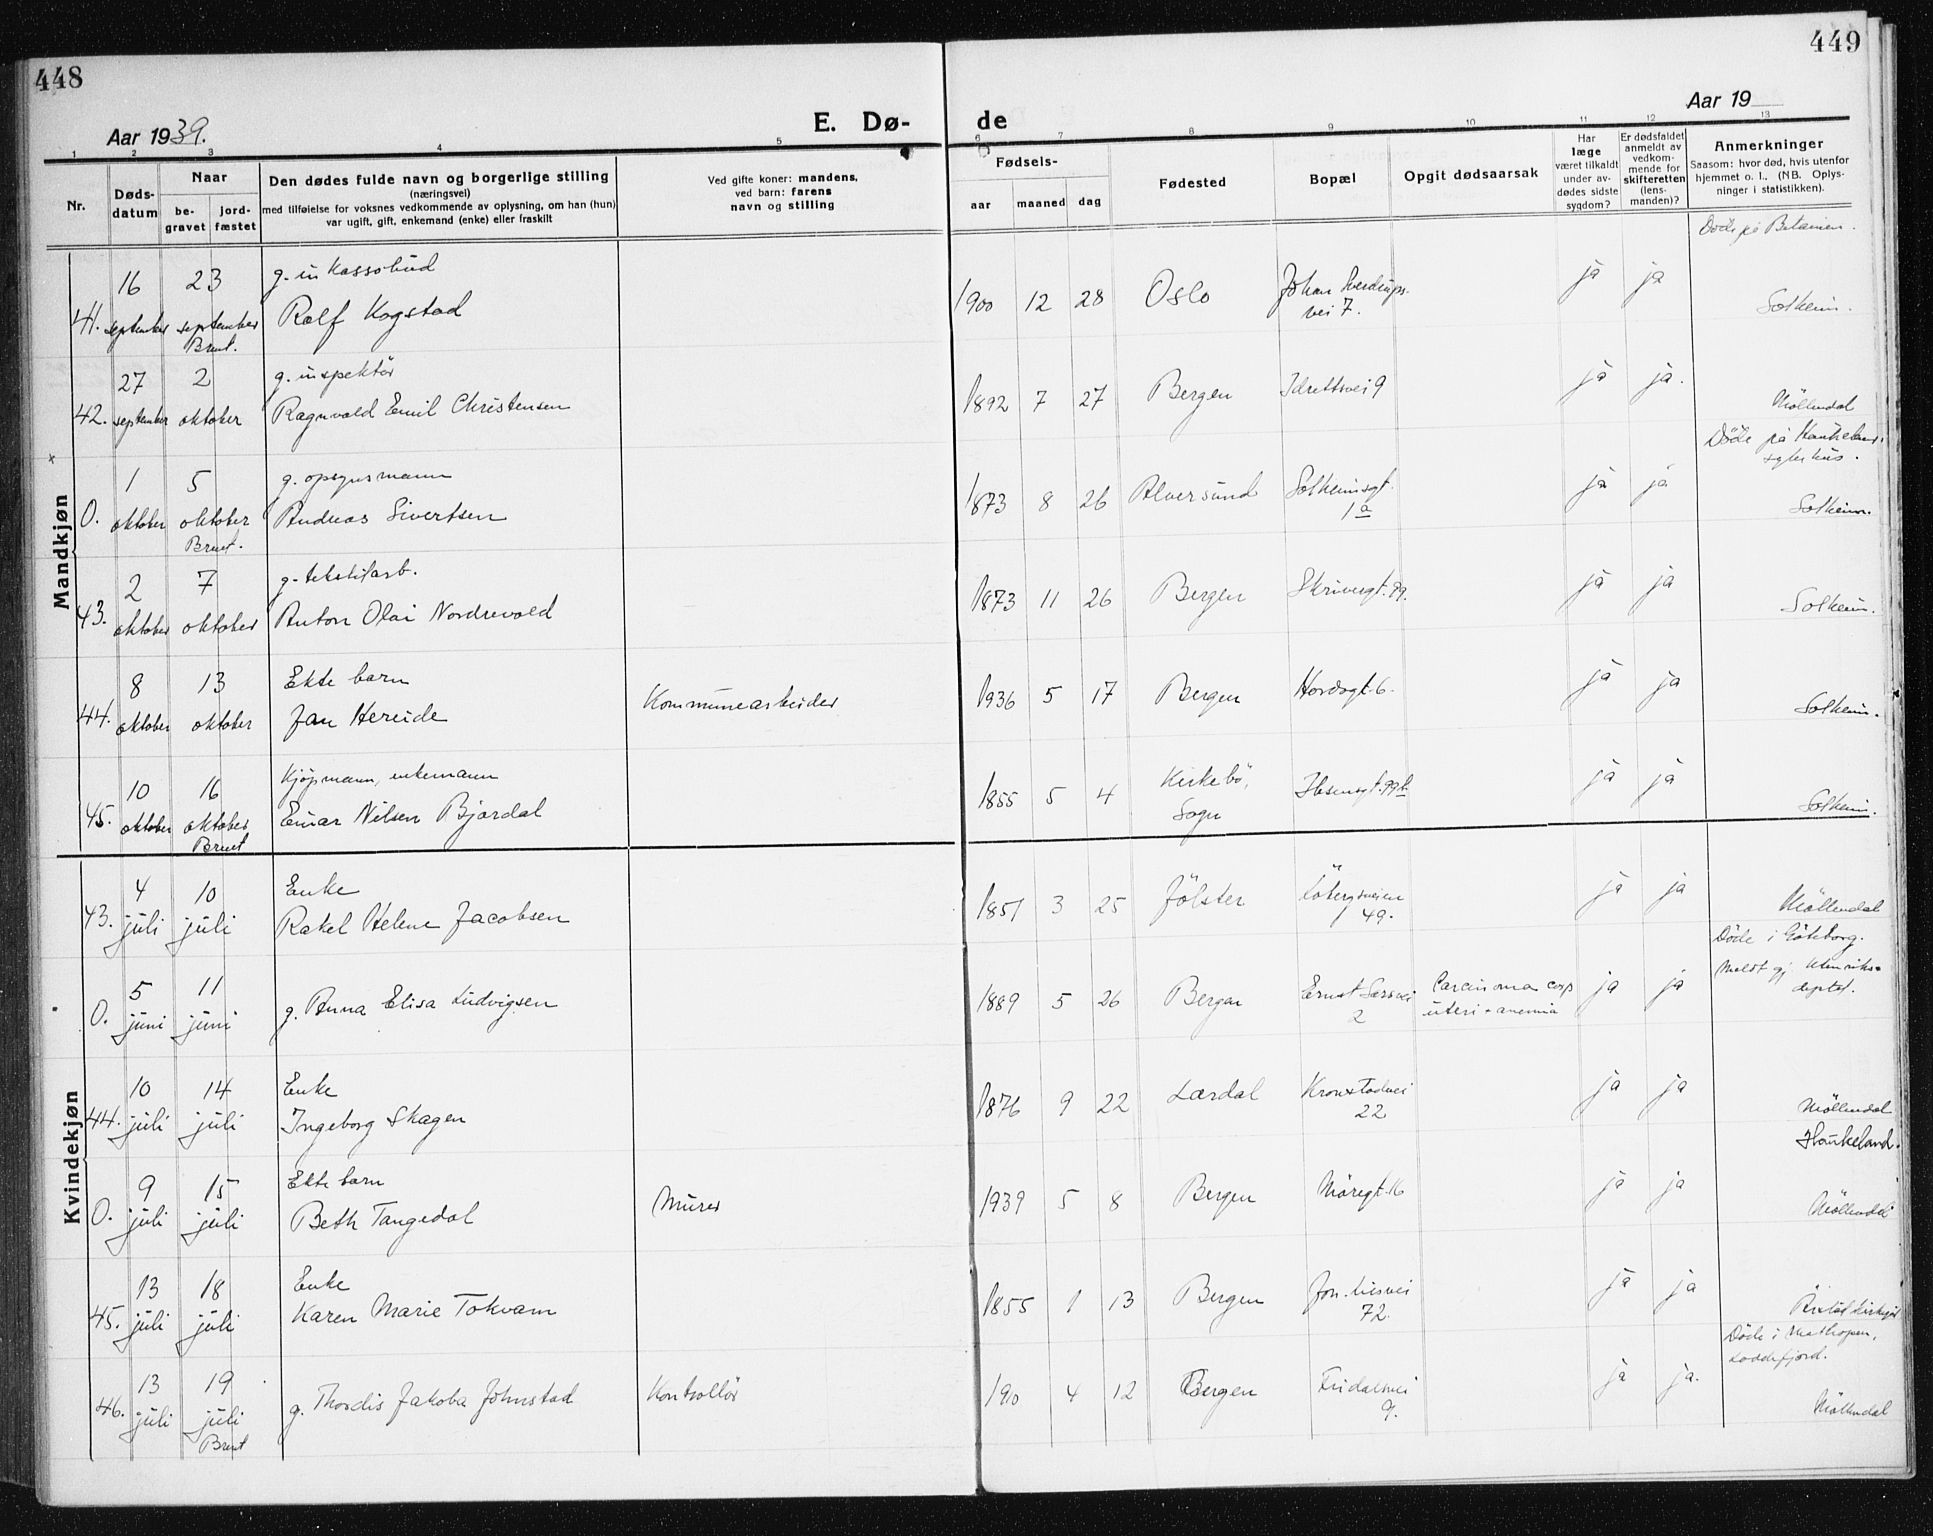 448
449
Aar 1939.
E. Dø-
de
Aar 19
1 2 3 4 5 6 7 8 9 10 11 12 13
Nr.
Døds-
datum
Naar
be-
gravet
jord-
fæstet
Den dødes fulde navn og borgerlige stilling
(næringsvei)
med tilføielse for voksnes vedkommende av oplysning, om han (hun)
var ugift, gift, enkemand (enke) eller fraskilt
Ved gifte koner: mandens,
ved barn: farens
navn og stilling
Fødsels-
aar maaned dag
Fødested
Bopæl
Opgit dødsaarsak
Har
læge
været tilkaldt
under av-
dødes sidste
sygdom?
Er dødsfaldet
anmeldt av
vedkom-
mende for
skifteretten
(lens-
manden)?
Anmerkninger
Saasom: hvor død, hvis utenfor
hjemmet o. l.. (NB. Oplys-
ninger i statistikken).
Mandkjøn
Døde på Betanien.
16 23 g. Kassobud
41. september september Rolf Kogstad 1900 12 28 Oslo Johan Sverdrups-
vei 7. ja ja Solheim.
Brent.
27 2 g. inspektör
42. september oktober Ragnvald Emil Christensen 1892 7 27 Bergen Idrettsvei 9 ja ja. Möllendal
Döde på Haukeland
sykehus.
1 5 g. opsynsmann
0. oktober oktober Andreas Sivertsen 1873 8 26 Alversund Solheimsgt.
1a ja ja Solheim.
Brent.
2 7 g. tekstilarb.
43. oktober oktober Anton Olai Nordrevold 1873 11 26 Bergen Skrivergt. 99. ja ja Solheim.
8 13 Ekte barn
44. oktober oktober Jan Hereide Kommunearbeider 1936 5 17 Bergen Hordagt. 6. ja ja Solheim.
10 16 Kjøpmann, enkemann
45. oktober oktober Einar Nilsen Bjordal 1855 5 4 Kirkebö,
Sogn Ibsensgt. 99b ja ja Solheim.
Brent
Kvindekjøn
4 10 Enke
43. juli juli Rakel Helene Jacobsen 1851 3 25 Jölster Löbergsveien
49. ja ja Möllendal
Döde i Göteborg.
Meldt gj.
5 11
0. juni juni g. Anna Elisa Ludvigsen 1889 5 26 Bergen Ernst Sarsvei
2 Carcinoma corp
uteri + anemia ja ja
10 14 Enke
44. juli juli Ingeborg Skagen 1876 9 22 Lærdal Kronstadvei
22 ja ja Möllendal
Haukeland.
9 15 Ekte barn
0. juli juli Beth Tangedal Murer 1939 5 8 Bergen Möregt. 16 ja ja Möllendal
13 18 Enke
45. juli juli Karen Marie Tokvam 1855 1 13 Bergen Jon. Liesvei
72. ja ja Årstad kirkegd
Döde i Mathopen,
Loddefjord.
13 19
46. juli juli g. Thordis Jakoba Johnstad Kontrollör 1910 4 12 Bergen Fridalsvei
9. ja ja. Möllendal
Brent